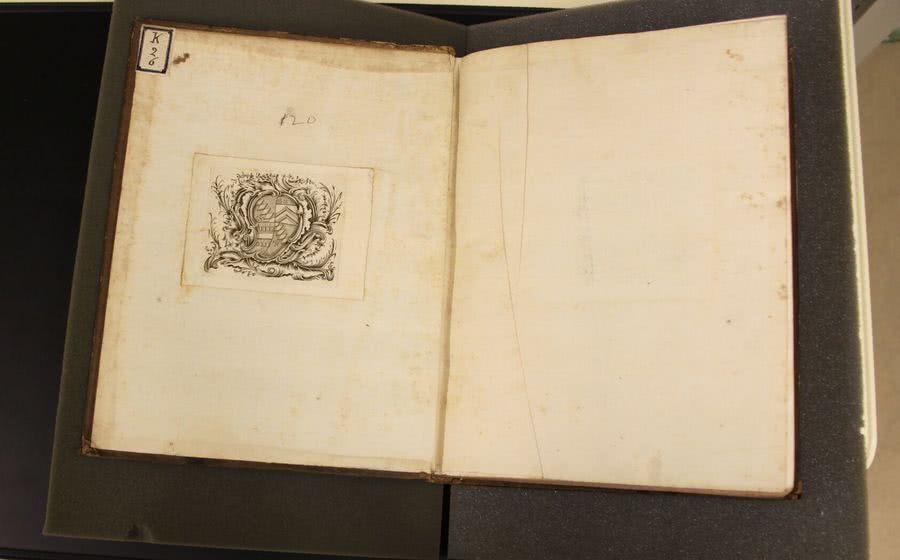 K
2
6
120